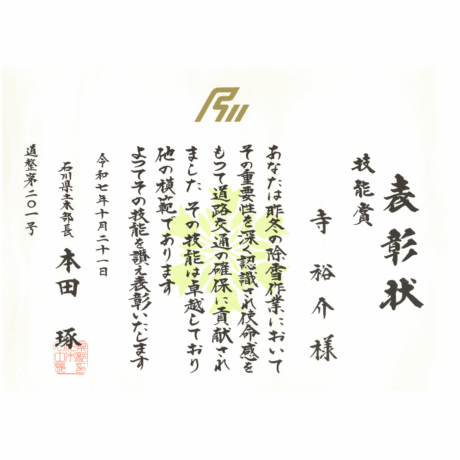 表彰状
技能賞
寺 裕介 様
あなたは昨冬の除雪作業において
その重要性を深く認識され使命感を
もって道路交通の確保に貢献され
ました その技能は卓越しており
他の模範であります
よってその技能を讃え表彰いたします
令和七年十月二十一日
石川県土木部長 本田 琢
道整第二〇一号